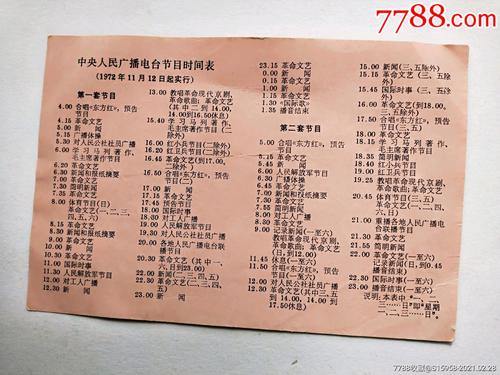 7788.com
中央人民广播电台节目时间表
(1972年11月12日起实行)
第一套节目
4.00 合唱《东方红》,预告
节目
4.15 革命文艺
5.00 新 闻
5.15 广播体操
5.30 对人民公社社员广播
6.00 学习马列著作、
毛主席著作节目
6.20 革命文艺
6.30 新闻和报纸摘要
7.00 革命文艺
7.30 简明新闻
7.35 革命文艺
8.00 体育节目(三、日)
革命文艺(一、二、
四、五、六)
8.15 革命文艺
8.30 新闻和报纸摘要
9.00 新闻
9.15 革命文艺
10.00 新 闻
11.00 革命文艺
11.30 人民解放军节目
12.00 对工人广播
12.30 新 闻
13.00 教唱革命现代京剧、
革命歌曲;革命文艺
(其中二到14.00,
14.00到16.50休息)
15.40 学习马列著作、
毛主席著作节目(二除外)
16.00 红小兵节目(二除外)
16.20 红卫兵节目(二除外)
16.45 革命文艺(到17.00,
二除外)
16.50 合唱《东方红》,预告
节目(二)
17.00 新 闻
17.15 革命文艺
17.45 预告节目
17.50 革命文艺
18.00 国际时事
18.30 对工人广播
19.00 人民解放军节目
19.30 对人民公社社员广播
20.00 各地人民广播电台联播
节目
20.30 革命文艺(其中一、
六、日到23.00)
22.00 新闻(二、三、四、五)
22.15 革命文艺(二、三、
四、五)
23.00 新 闻
23.15 革命文艺
0.00 新 闻
0.15 革命文艺
1.00 新 闻
1.15 革命文艺
1.30 《国际歌》
1.35 播音结束
第二套节目
5.00 合唱《东方红》,预告
节目
5.15 革命文艺
5.45 新 闻
6.00 人民解放军节目
6.30 广播体操
6.40 革命文艺
7.00 新闻和报纸摘要
7.30 革命文艺
7.55 简明新闻
8.00 革命文艺
8.30 对工人广播
9.00 记录新闻(一至六)
教唱革命现代京剧、
革命歌曲;革命文艺
(日,到11.50)
11.45 休息(一至六)
11.50 合唱《东方红》,预告
节目(一至六)
12.00 对人民公社社员广播
12.30 革命文艺(其中三、五
到14.00,14.00到
17.50休息)
15.00 新闻(三、五除外)
15.15 革命文艺(三、五除
外)
15.45 国际时事(三、五除
外)
16.00 革命文艺(到18.00,
三、五除外)
17.50 合唱《东方红》,预告
节目(三、五)
18.00 新 闻
18.15 革命文艺
18.35 简明新闻
18.40 红小兵节目
19.00 红卫兵节目
19.25 教唱革命现代京剧、
革命歌曲;革命文艺
20.45 体育节目(一、四、
六)
21.00 重播各地人民广播电
台联播节目
21.30 革命文艺
21.55 简明新闻
22.00 革命文艺(一至六)
记录新闻(日,到0.45
播音结束)
22.30 国际时事(一至六)
23.00 播音结束(一至六)
说明:本表中“一、二、
三……日”即“星期
一、二、三……日”。
7788收藏@S15958-2021.02.28